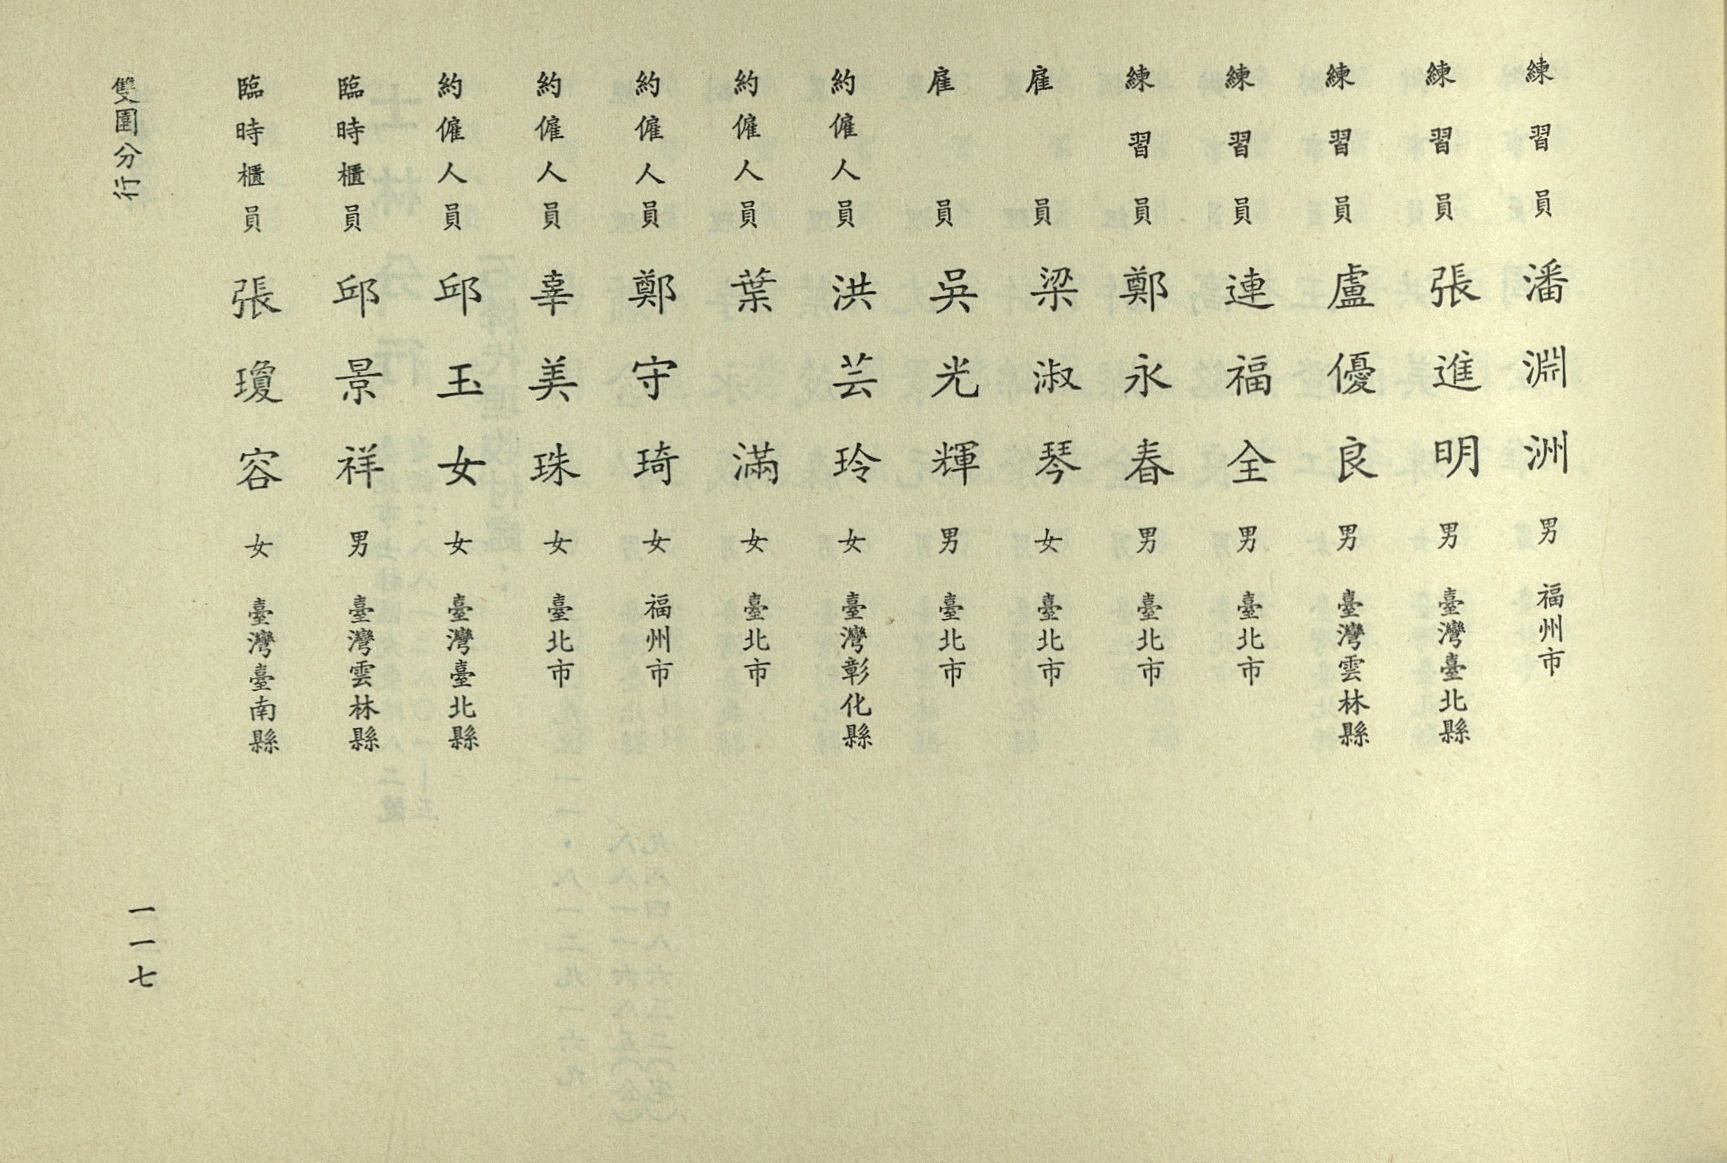 練習員 潘淵洲 男 福州市
練習員 張進明 男 臺灣臺北縣
練習員 盧優良 男 臺灣雲林縣
練習員 連福全 男 臺北市
練習員 鄭永春 男 臺北市
雇員 梁淑琴 女 臺北市
雇員 吳光輝 男 臺北市
約僱人員 洪芸玲 女 臺灣彰化縣
約僱人員 葉滿 女 臺北市
約僱人員 鄭守琦 女 福州市
約僱人員 辜美珠 女 臺北市
約僱人員 邱玉女 女 臺灣臺北縣
臨時櫃員 邱景祥 男 臺灣雲林縣
臨時櫃員 張瓊容 女 臺灣臺南縣
雙園分行
一一七